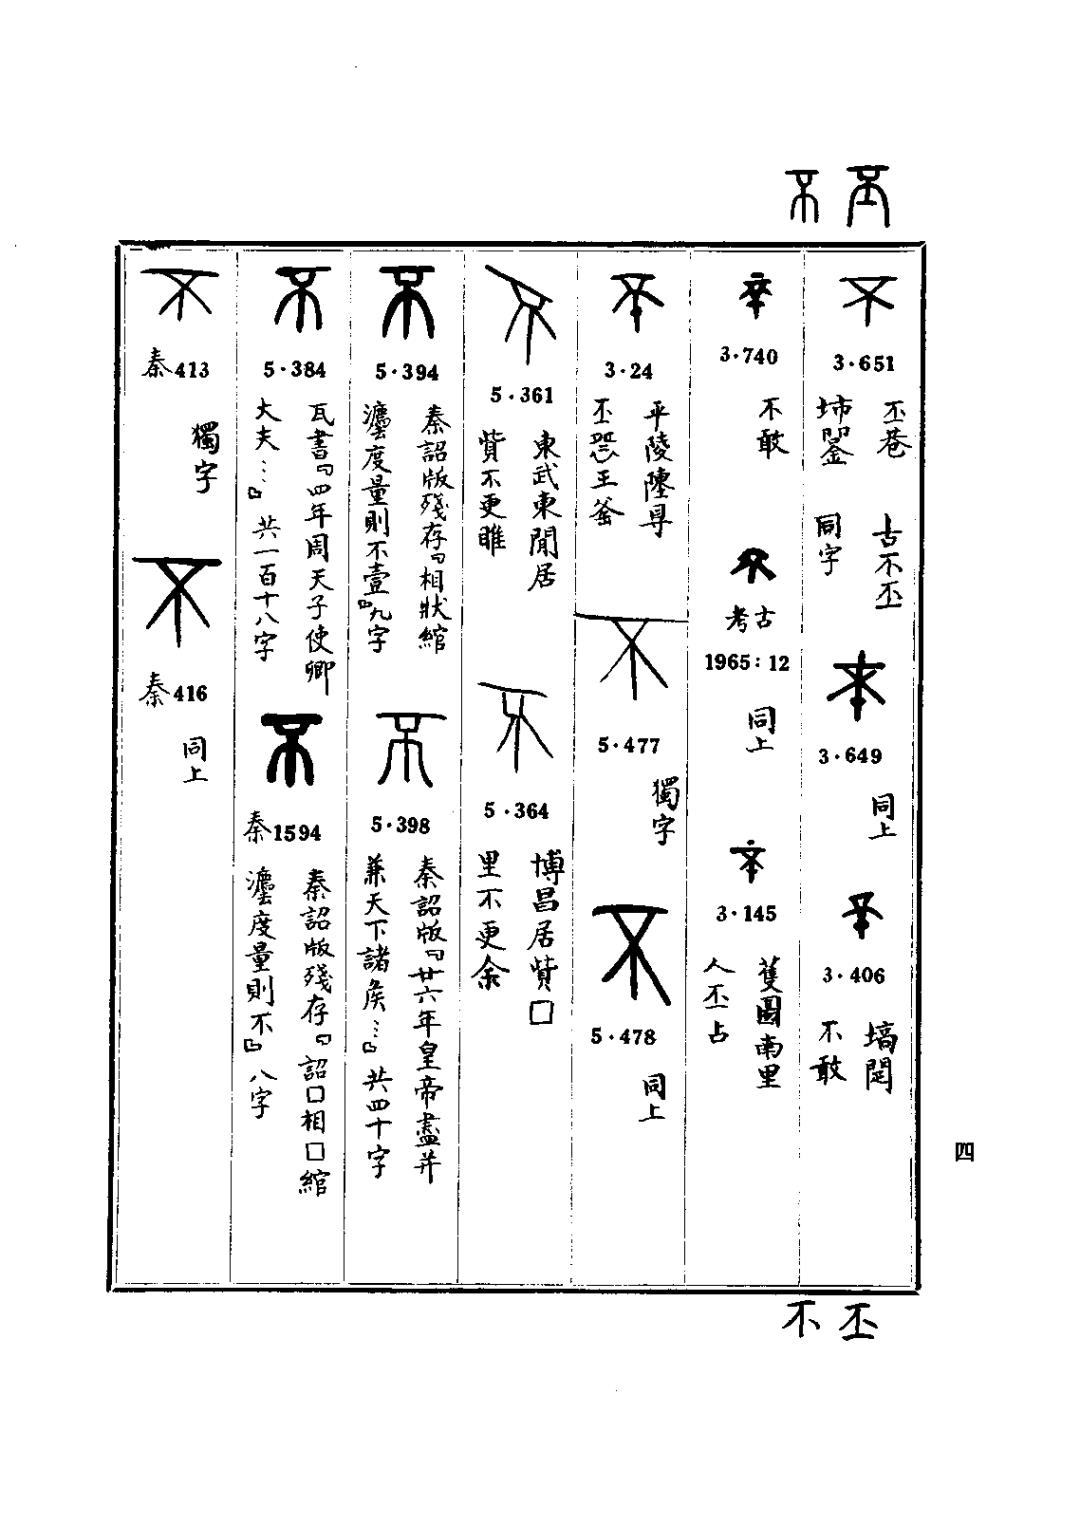 丕 不
3·651
丕巷
古不丕
同字
3·649
同上
3·406
不敢
3·740
不敢
古
考
1965:12
同上
3·145
蒦圆南里
人丕占
3·24
平陵陻㝵
丕王釜
5·477
獨字
5·478
同上
5·361
東武東閒居
貲不更雎
5·364
博昌居貲□
里不更余
5·394
秦詔版殘存『相狀綰
灋度量則不壹』九字
5·398
秦詔版『廿六年皇帝盡并
兼天下諸矦…』共四十字
5·384
瓦書『四年周天子使卿
大夫…』共一百十八字
秦1594
秦詔版殘存『詔□相□綰
灋度量則不』八字
秦413
獨字
秦416
同上
四
丕 不